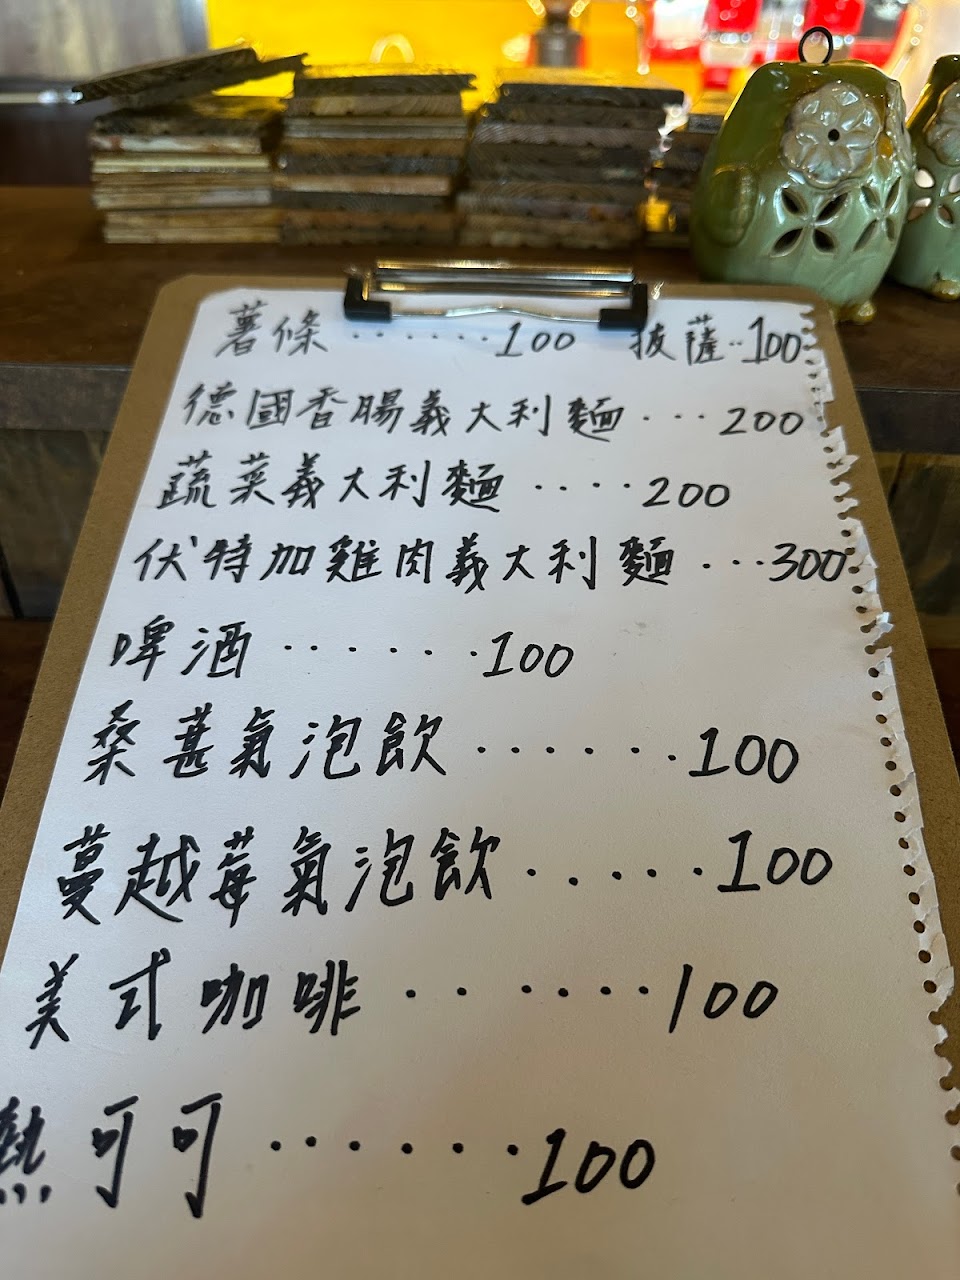 薯條 ‧‧‧‧‧‧‧ 100 披薩‧‧100
德國香腸義大利麵 ‧‧‧ 200
蔬菜義大利麵 ‧‧‧‧ 200
伏特加雞肉義大利麵 ‧‧‧300
啤酒 ‧‧‧‧‧‧‧100
桑葚氣泡飲 ‧‧‧‧‧‧‧100
蔓越莓氣泡飲 ‧‧‧‧‧100
美式咖啡 ‧‧‧‧‧‧‧100
熱可可 ‧‧‧‧‧‧‧100